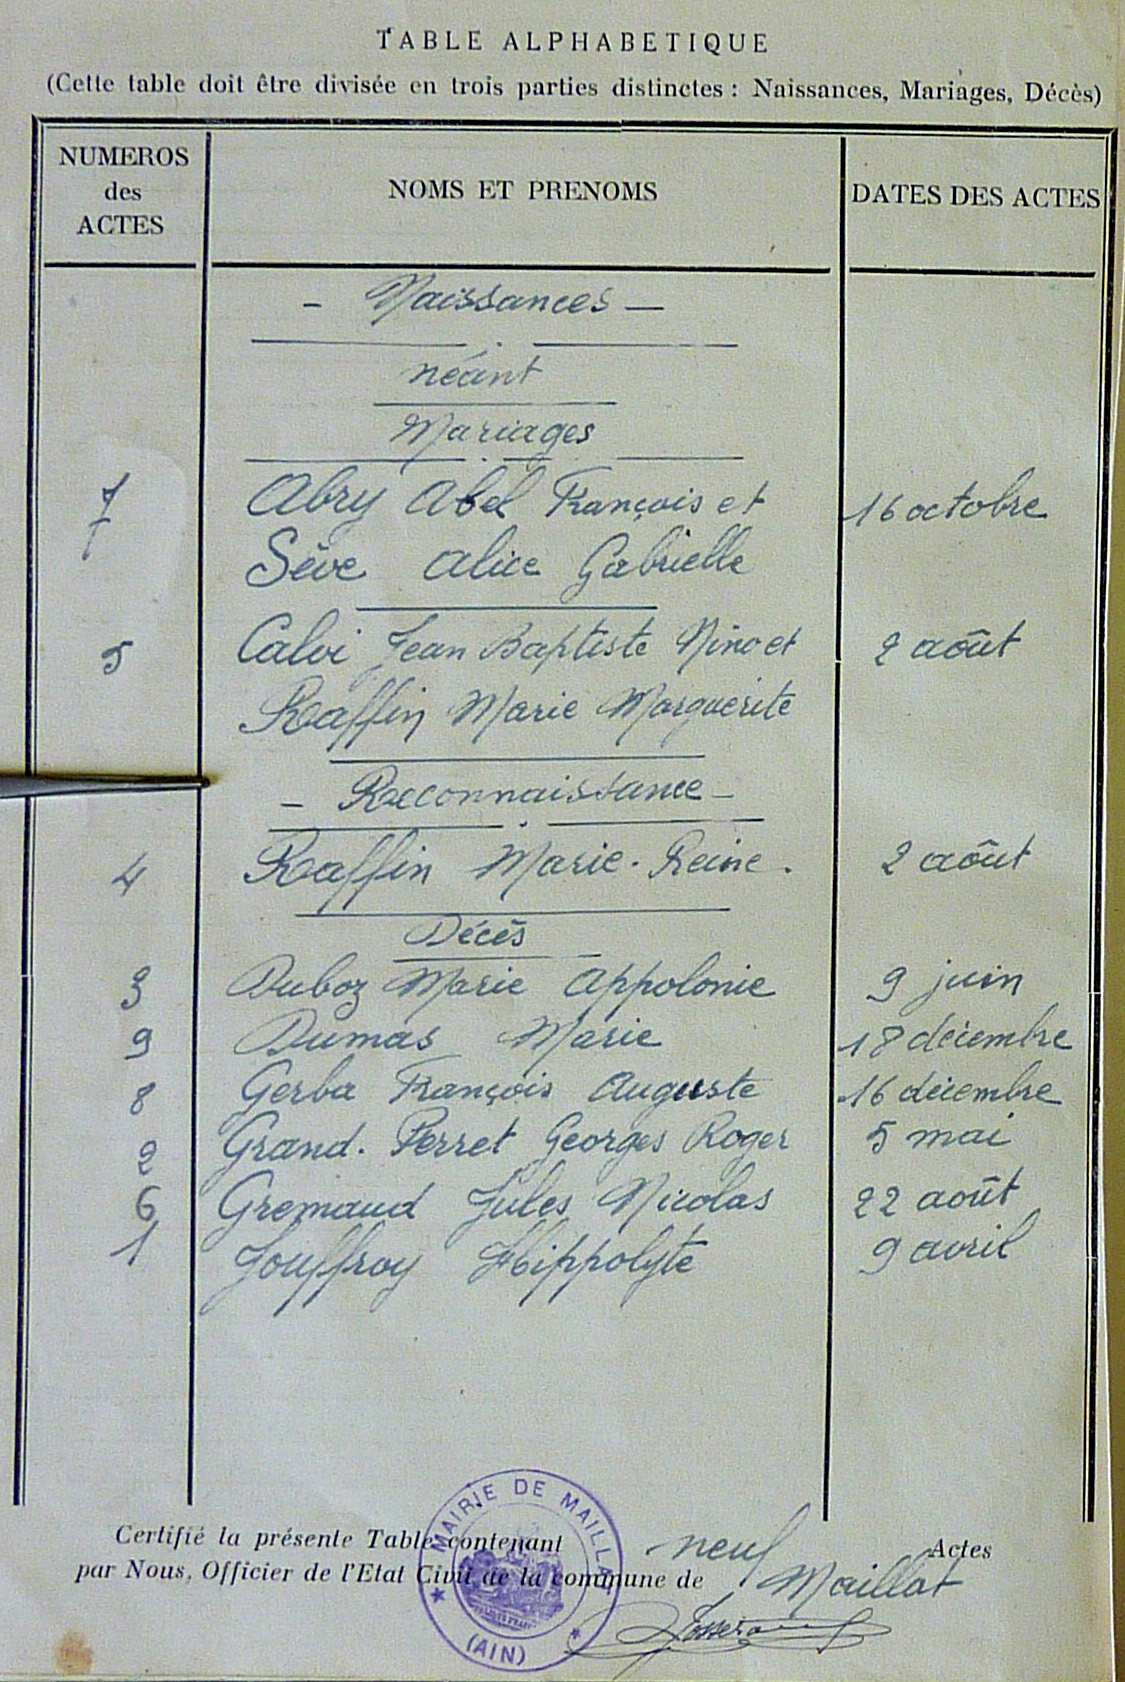 TABLE ALPHABETIQUE
(Cette table doit être divisée en trois parties distinctes : Naissances, Mariages, Décès)
NUMEROS des ACTES
NOMS ET PRENOMS
DATES DES ACTES
- Naissances -
néant
Mariages
7 Abry Abel François et 16 octobre
Sève Alice Gabrielle
5 Calvi Jean Baptiste Nino et 2 août
Raffin Marie Marguerite
- Reconnaissance -
4 Raffin Marie-Reine. 2 août
Décès
3 Duboz Marie Appolonie 9 juin
9 Dumas Marie 18 décembre
8 Gerba François Auguste 16 décembre
2 Grand-Perret Georges Roger 5 mai
6 Gremaud Jules Nicolas 22 août
1 Jouffroy Hippolyte 9 avril
Certifié la présente Table contenant neuf Actes
par Nous, Officier de l'Etat Civil de la commune de Maillat
MAIRIE DE MAILLAT
(AIN)